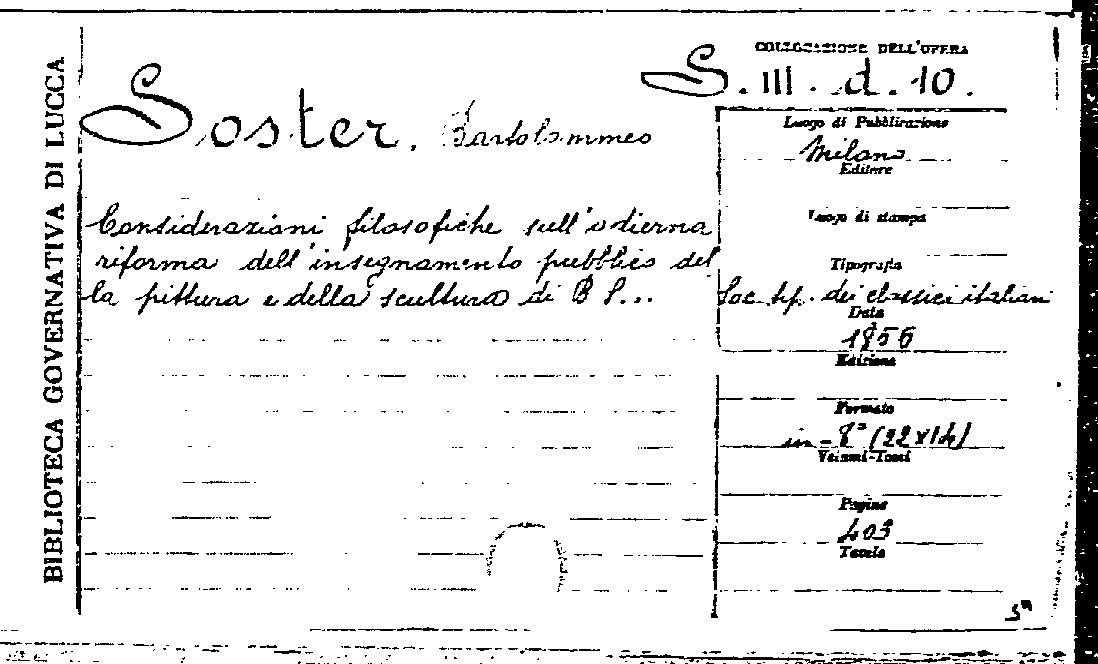 BIBLIOTECA GOVERNATIVA DI LUCCA
COLLOCAZIONE DELL'OPERA
S. III. d. 10.
Soster, Bartolommeo
Considerazioni filosofiche sull'odierna
riforma dell'insegnamento pubblico del
la pittura e della scultura di B S...
Luogo di Pubblicazione
Milano
Editore
Luogo di stampa
Tipografia
Soc. tip. dei classici italiani
Data
1856
Edizione
Formato
in-8° (22x14)
Volumi-Tomi
Pagine
403
Tavole